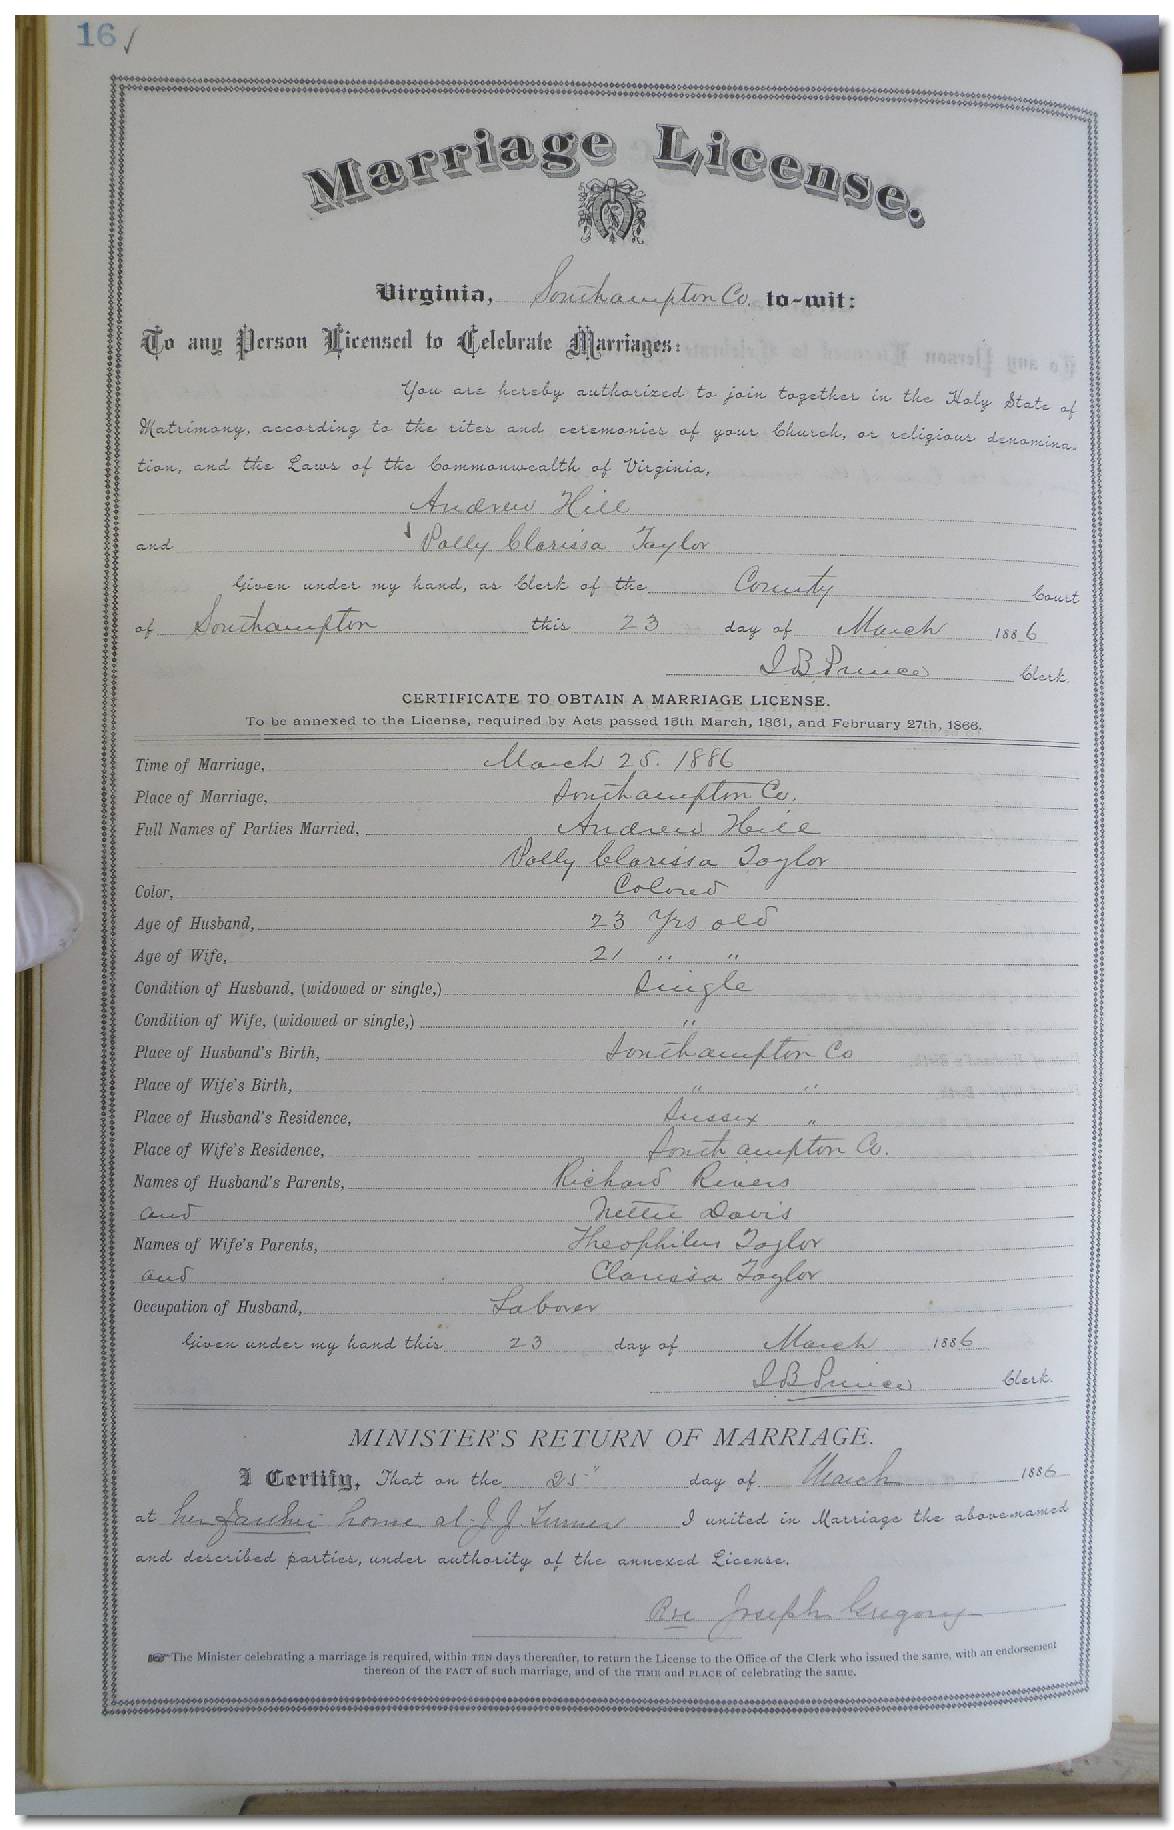 16 ✓
Marriage License.
Virginia, Southampton Co. to-wit:
To any Person Licensed to Celebrate Marriages:
You are hereby authorized to join together in the Holy State of
Matrimony, according to the rites and ceremonies of your Church, or religious denomina-
tion, and the Laws of the Commonwealth of Virginia,
Andrew Hill
and Polly Clarissa Taylor
Given under my hand, as Clerk of the County Court
of Southampton this 23 day of March 1886
J B Prince Clerk.
CERTIFICATE TO OBTAIN A MARRIAGE LICENSE.
To be annexed to the License, required by Acts passed 15th March, 1861, and February 27th, 1866.
Time of Marriage, March 25. 1886
Place of Marriage, Southampton Co.
Full Names of Parties Married, Andrew Hill
Polly Clarissa Taylor
Color, Colored
Age of Husband, 23 Yrs old
Age of Wife, 21 " "
Condition of Husband, (widowed or single,) Single
Condition of Wife, (widowed or single,) "
Place of Husband's Birth, Southampton Co
Place of Wife's Birth, " "
Place of Husband's Residence, Sussex "
Place of Wife's Residence, Southampton Co.
Names of Husband's Parents, Richard Rivers
and Nettie Davis
Names of Wife's Parents, Theophilus Taylor
and Clarissa Taylor
Occupation of Husband, Laborer
Given under my hand this 23 day of March 1886
J B Prince Clerk.
MINISTER'S RETURN OF MARRIAGE.
I Certify, That on the 25" day of March 1886
at her home at J J Turner I united in Marriage the above-named
and described parties, under authority of the annexed License.
Joseph Gregory
☞ The Minister celebrating a marriage is required, within TEN days thereafter, to return the License to the Office of the Clerk who issued the same, with an endorsement
thereon of the FACT of such marriage, and of the TIME and PLACE of celebrating the same.